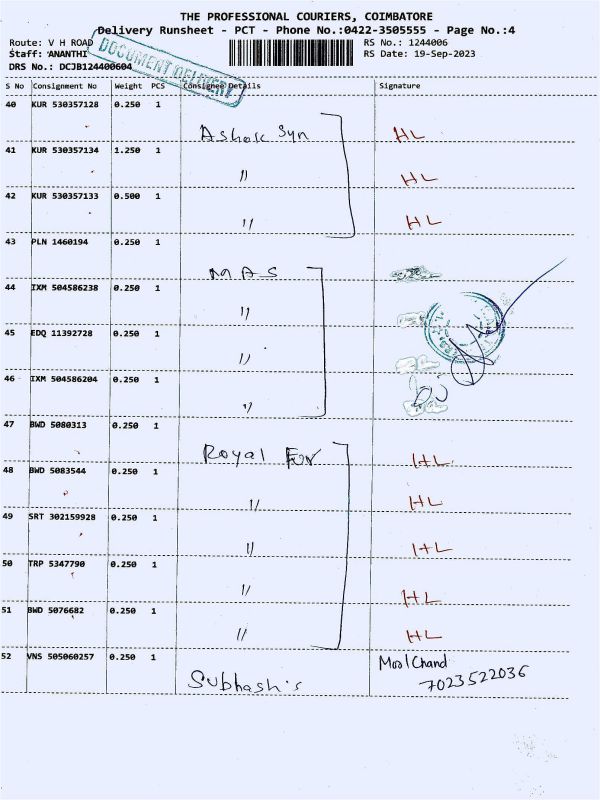 THE PROFESSIONAL COURIERS, COIMBATORE
Delivery Runsheet - PCT - Phone No.:0422-3505555 - Page No.:4
Route: V H ROAD
RS No.: 1244006
Staff: ANANTHI
RS Date: 19-Sep-2023
DRS No.: DCJB124400604
DOCUMENT DELIVERY
S No Consignment No Weight PCS Consignee Details Signature
40 KUR 530357128 0.250 1
Ashok Syn HL
41 KUR 530357134 1.250 1
" HL
42 KUR 530357133 0.500 1
" HL
43 PLN 1460194 0.250 1
MAS
44 IXM 504586238 0.250 1
"
45 EDQ 11392728 0.250 1
"
46 IXM 504586204 0.250 1
"
47 BWD 5080313 0.250 1
Royal For HL
48 BWD 5083544 0.250 1
" HL
49 SRT 302159928 0.250 1
" HL
50 TRP 5347790 0.250 1
" HL
51 BWD 5076682 0.250 1
" HL
52 VNS 505060257 0.250 1
Subhash's Moolchand
7023522036